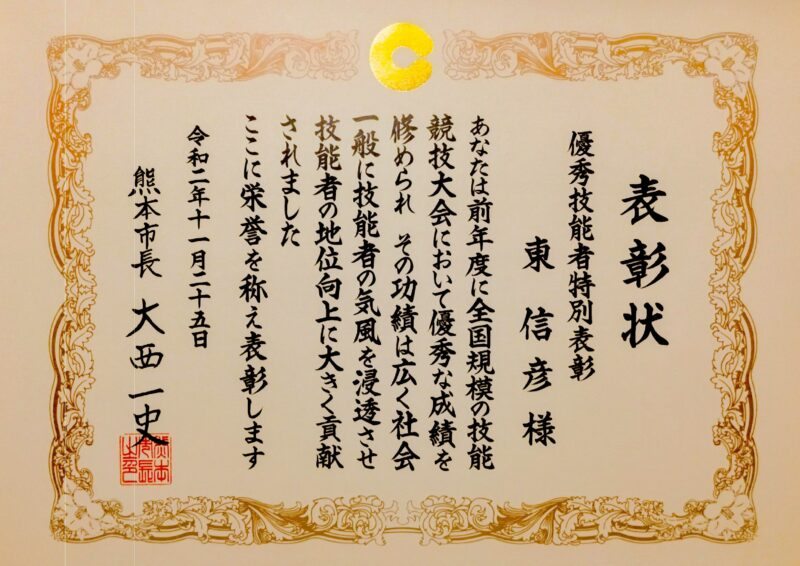 表彰状
優秀技能者特別表彰
東信彦様
あなたは前年度に全国規模の技能
競技大会において優秀な成績を
修められ その功績は広く社会
一般に技能者の気風を浸透させ
技能者の地位向上に大きく貢献
されました
ここに栄誉を称え表彰します
令和二年十一月二十五日
熊本市長 大西一史
熊本
市長
之印